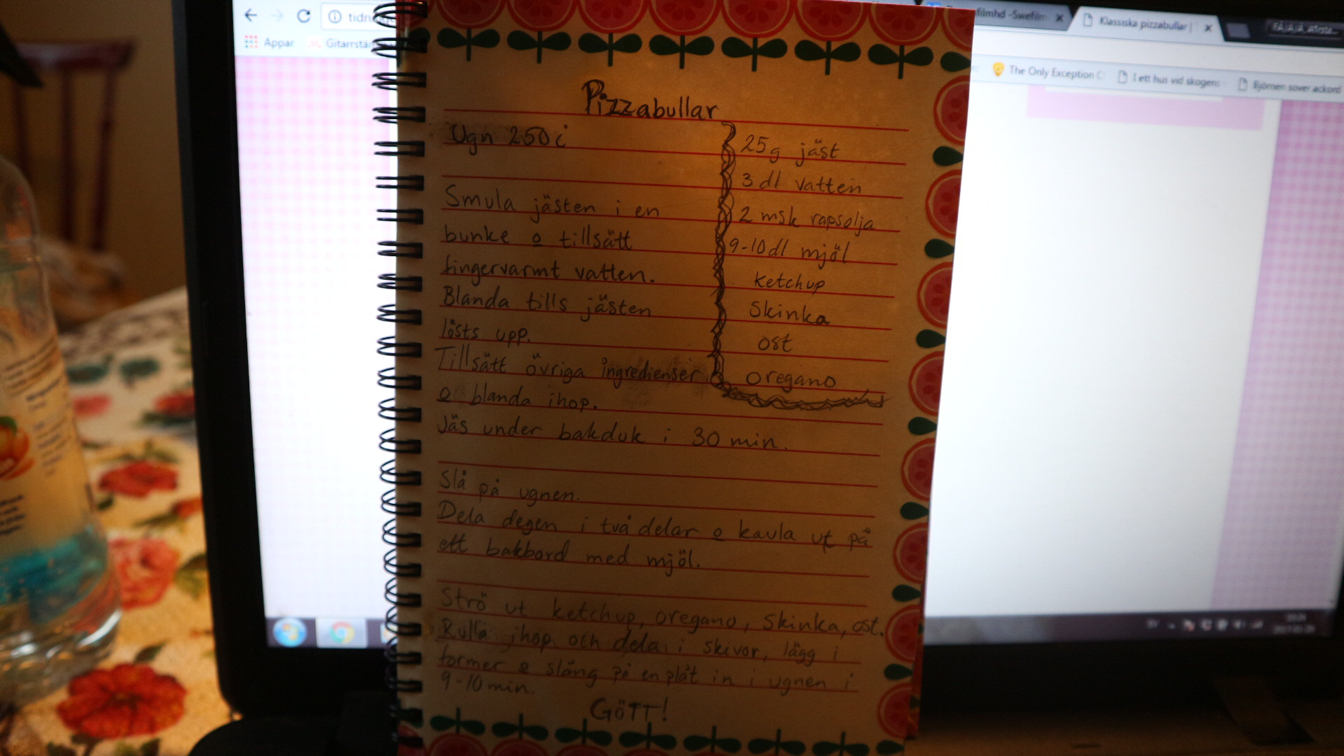 tidn
Appar
Gitarrstä
filmhd -Swefilm
Klassiska pizzabullar |
The Only Exception C
I ett hus vid skogens
Björnen sover ackord
Pizzabullar
Ugn 250c
Smula jästen i en
bunke o tillsätt
fingervarmt vatten.
Blanda tills jästen
lösts upp.
Tillsätt övriga ingredienser
o blanda ihop.
Jäs under bakduk i 30 min.
25g jäst
3 dl vatten
2 msk rapsolja
9-10 dl mjöl
ketchup
Skinka
ost
oregano
Slå på ugnen.
Dela degen i två delar o kavla ut på
ett bakbord med mjöl.
Strö ut ketchup, oregano, skinka, ost.
Rulla ihop och dela i skivor, lägg i
former o släng på en plåt in i ugnen i
9-10 min.
GÖTT!
SV